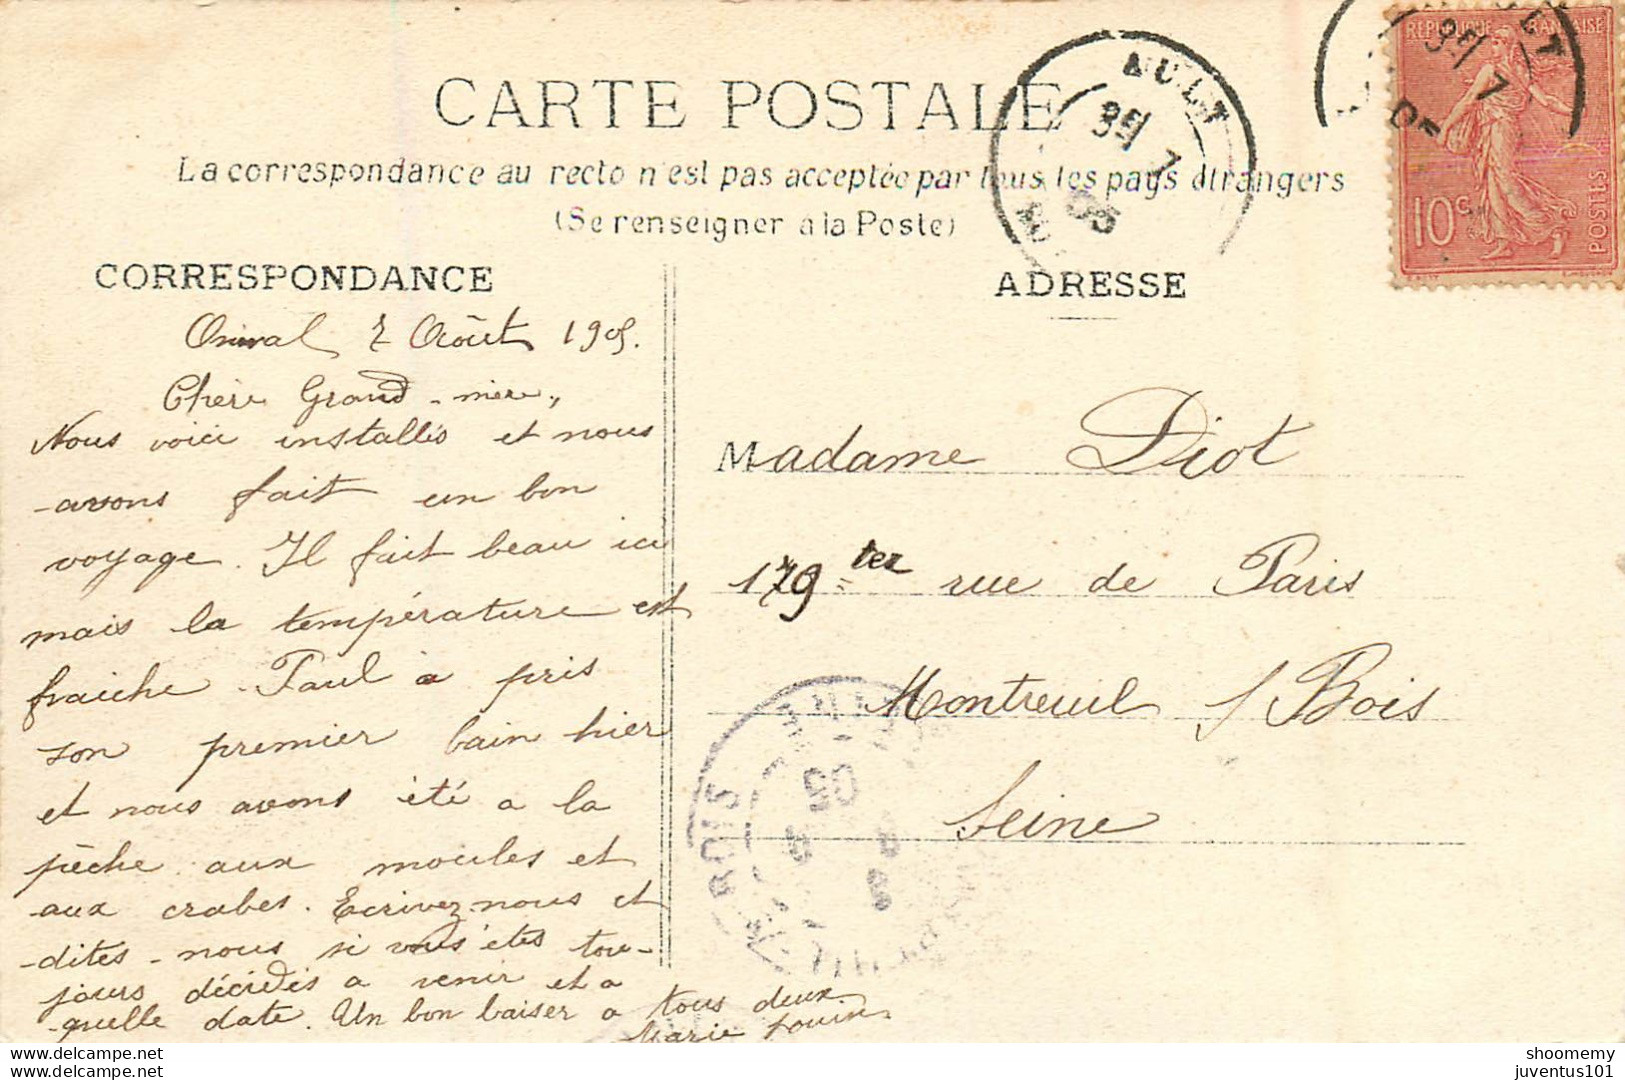 CARTE POSTALE
La correspondance au recto n'est pas acceptée par tous les pays étrangers
(Se renseigner à la Poste)
CORRESPONDANCE
Onival 7 Août 1905.
Chère Grand-mère,
Nous voici installés et nous
avons fait un bon
voyage. Il fait beau ici
mais la température est
fraiche. Paul a pris
son premier bain hier
et nous avons été a la
pêche aux moules et
aux crabes. Ecrivez-nous et
dites-nous si vous êtes tou-
jours décidés a venir et a
quelle date. Un bon baiser a tous deux.
Marie Louise
ADRESSE
Madame Diot
179 ter rue de Paris
Montreuil s/Bois
Seine
AULT
7
05
REPUBLIQUE FRANÇAISE
10c
POSTES
BOIS
05
www.delcampe.net
www.delcampe.net
shoomemy
juventus101